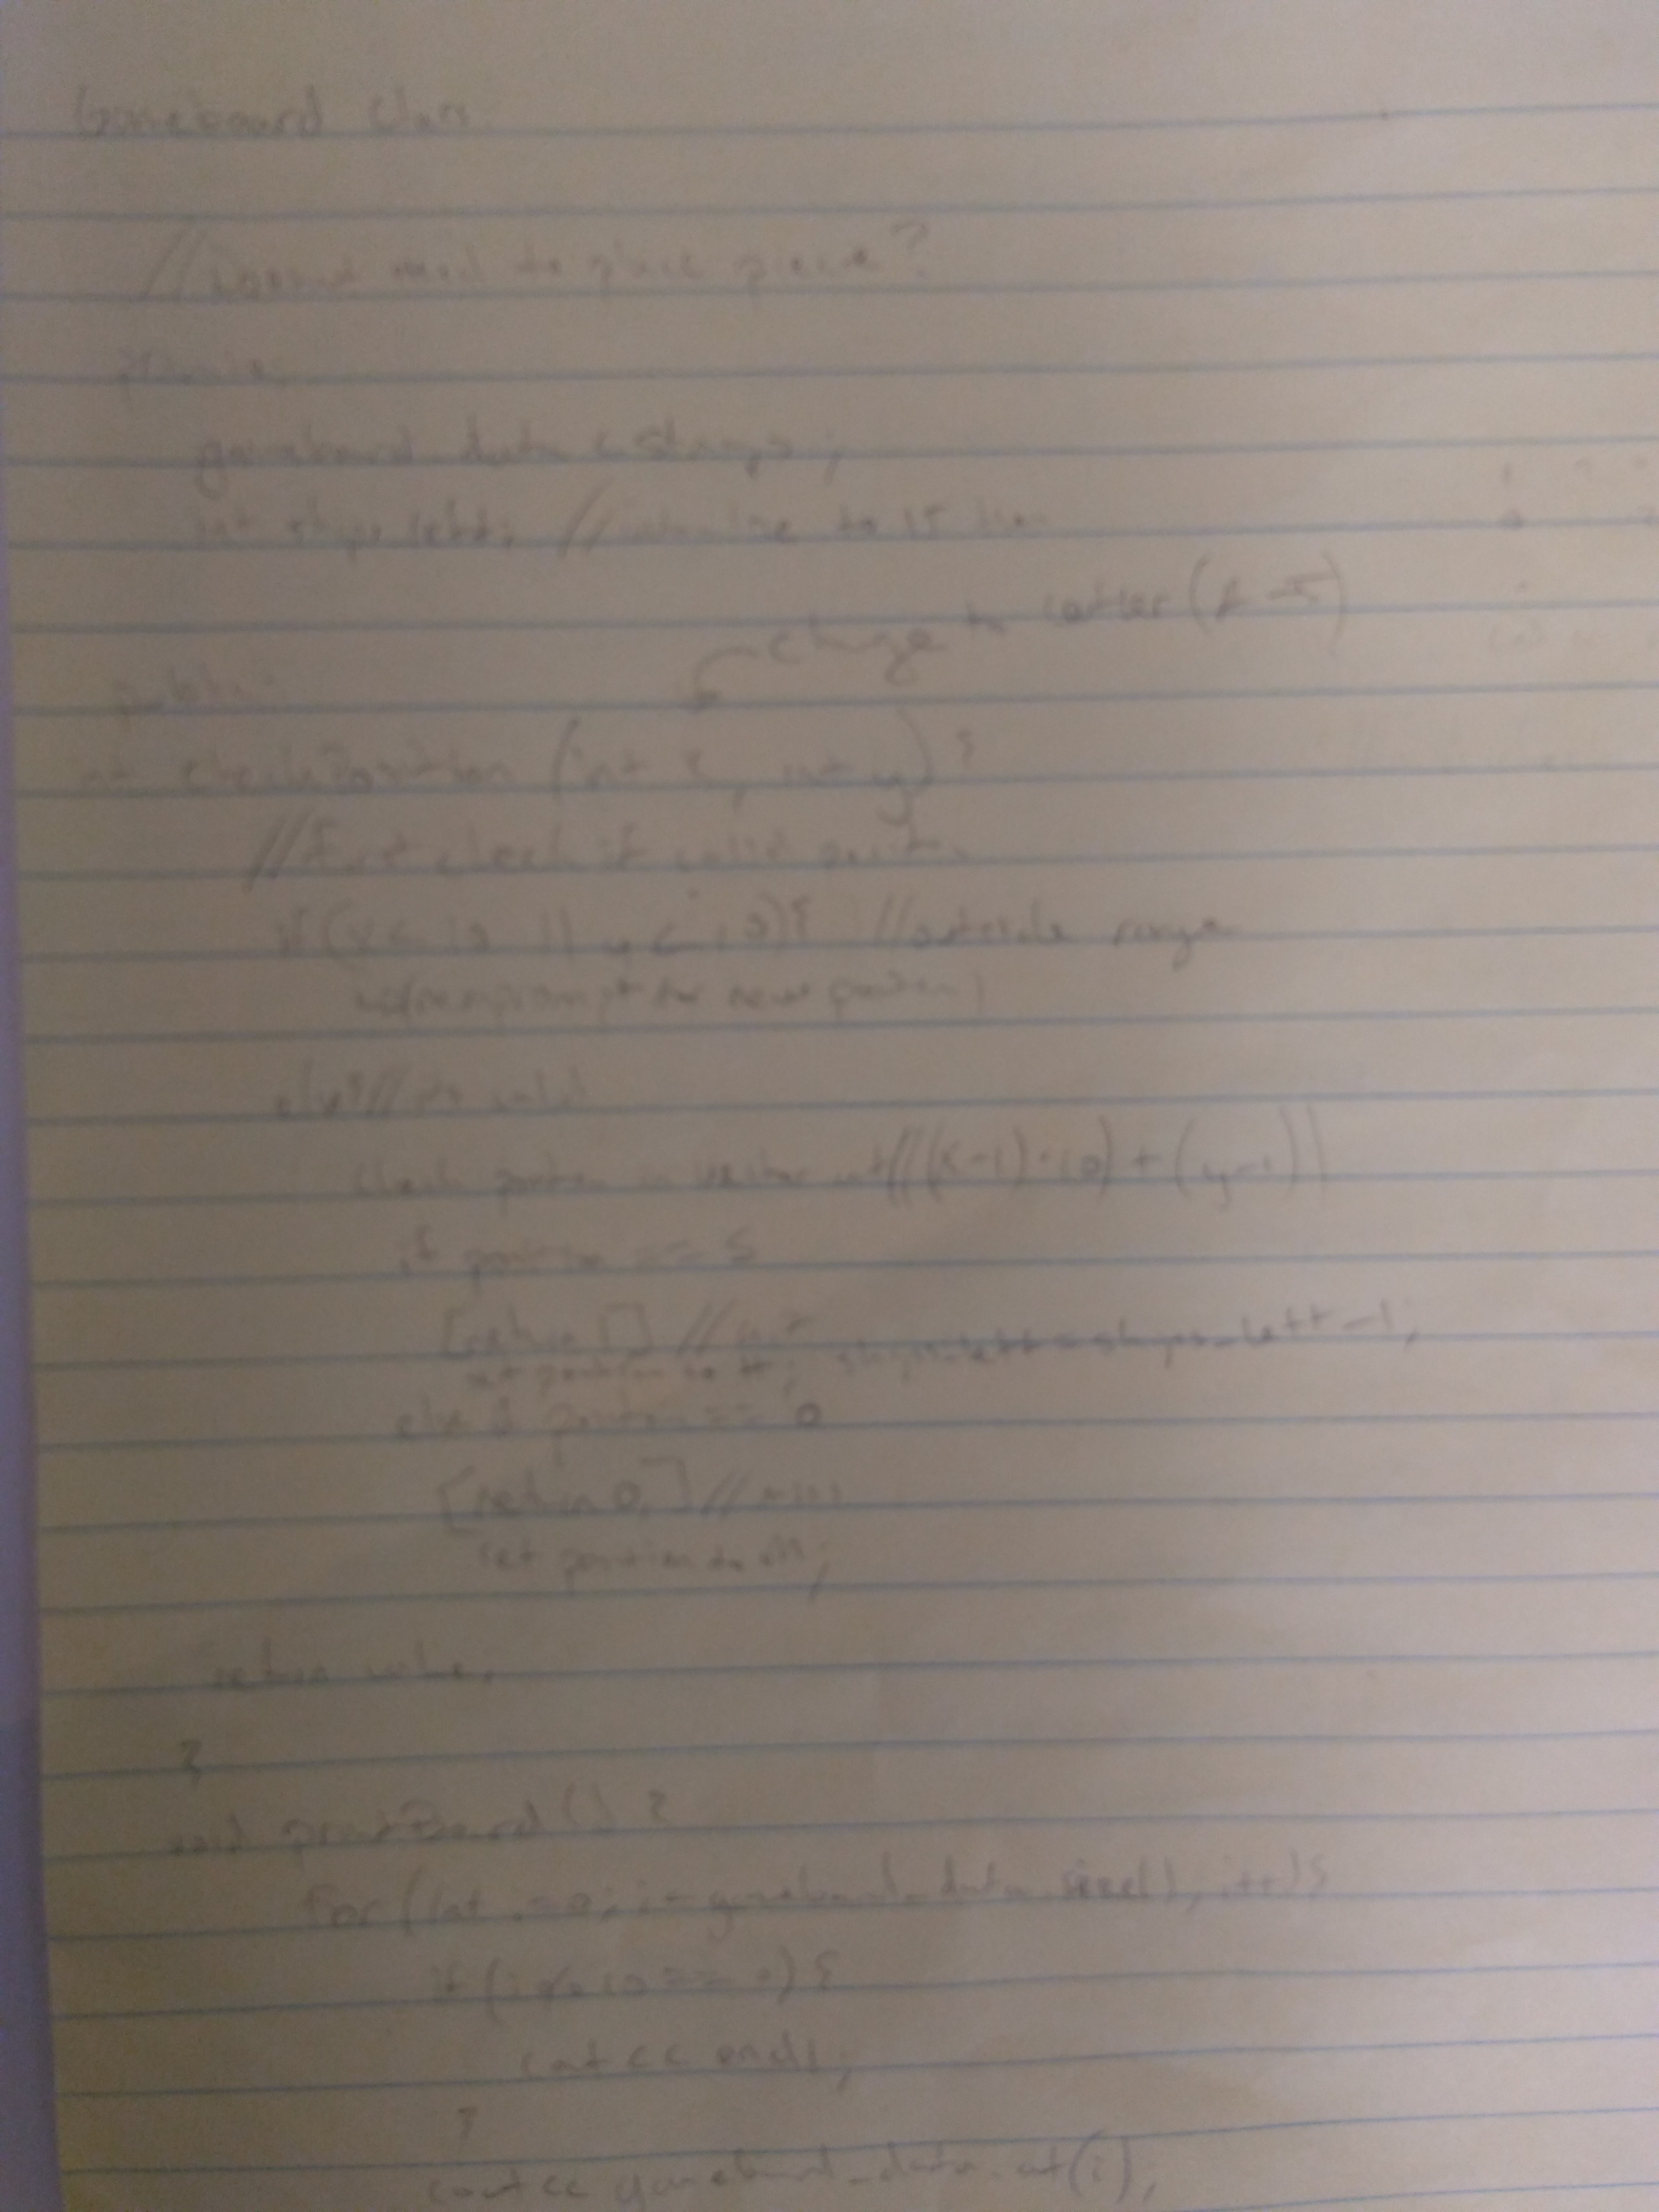 Gameboard Class
// board need to place piece?
private
gameboard_data <string>;
int ships_left; // to 15
change to letter (
public:
int checkPosition (int x, int y) {
// first check if valid position
if (x < 10 || y < 10) { // outside range
prompt for new position;
else { // its valid
check position in vector at (((x-1)·10) + (y-1))
if position == S
[return 1] // hit
set position to H; ships_left = ships_left - 1;
else if position == 0
[return 0;] // miss
set position to M;
return value;
}
void printBoard() {
for (int i=0; i gameboard_data.size(); i++) {
if (i % 10 == 0) {
cout << endl;
}
cout << gameboard_data.at(i);